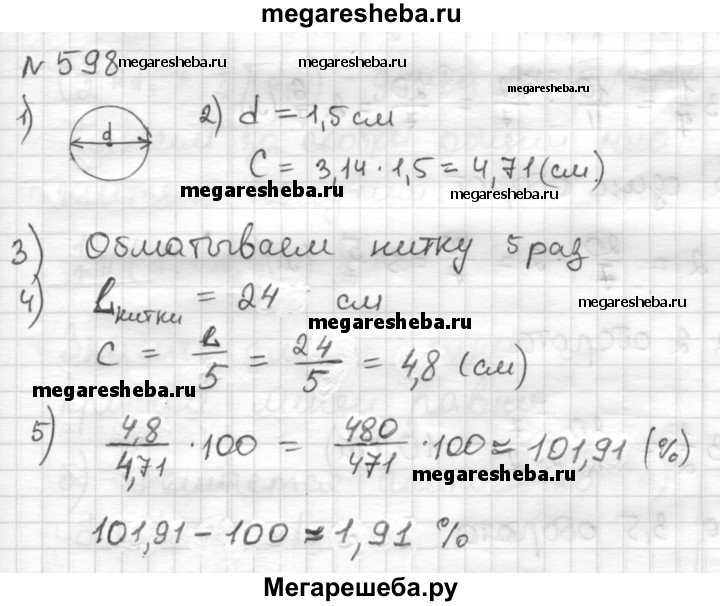 megaresheba.ru
N 598 megaresheba.ru
megaresheba.ru
1) d 2) d = 1,5 см
C = 3,14 · 1,5 = 4,71 (см)
megaresheba.ru megaresheba.ru
3) Обматываем нитку 5 раз
4) L нитки = 24 см
megaresheba.ru
megaresheba.ru
C = L/5 = 24/5 = 4,8 (см)
megaresheba.ru
5) 4,8/4,71 · 100 = 480/471 · 100 ≈ 101,91 (%)
megaresheba.ru
101,91 - 100 ≈ 1,91 %
Мегарешеба.ру